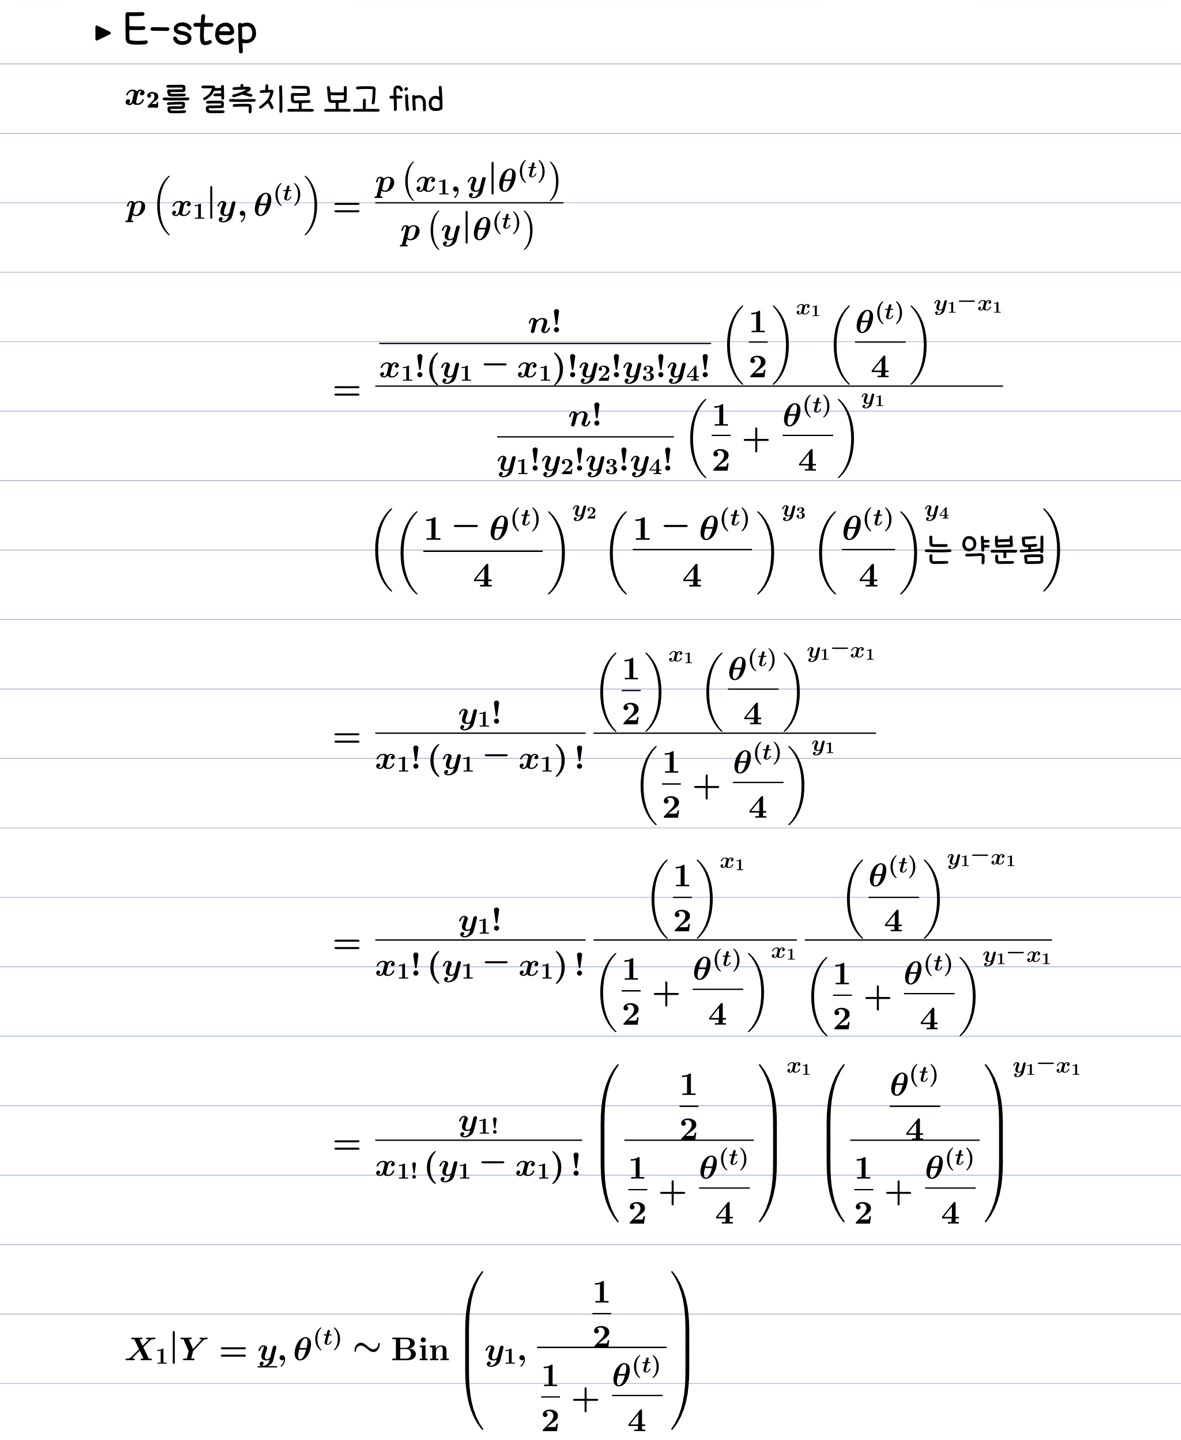 ▸ E-step
x₂를 결측치로 보고 find
p(x₁|y, θ^(t)) = p(x₁, y|θ^(t)) / p(y|θ^(t))
= [n! / (x₁!(y₁ − x₁)!y₂!y₃!y₄!) (1/2)^(x₁) (θ^(t)/4)^(y₁−x₁)] / [n! / (y₁!y₂!y₃!y₄!) (1/2 + θ^(t)/4)^(y₁)]
(((1 − θ^(t))/4)^(y₂) ((1 − θ^(t))/4)^(y₃) (θ^(t)/4)^(y₄) 는 약분됨)
= y₁! / (x₁!(y₁ − x₁)!) [(1/2)^(x₁) (θ^(t)/4)^(y₁−x₁)] / (1/2 + θ^(t)/4)^(y₁)
= y₁! / (x₁!(y₁ − x₁)!) (1/2)^(x₁) / (1/2 + θ^(t)/4)^(x₁) (θ^(t)/4)^(y₁−x₁) / (1/2 + θ^(t)/4)^(y₁−x₁)
= y₁! / (x₁!(y₁ − x₁)!) ((1/2) / (1/2 + θ^(t)/4))^(x₁) ((θ^(t)/4) / (1/2 + θ^(t)/4))^(y₁−x₁)
X₁|Y = y, θ^(t) ~ Bin(y₁, (1/2) / (1/2 + θ^(t)/4))